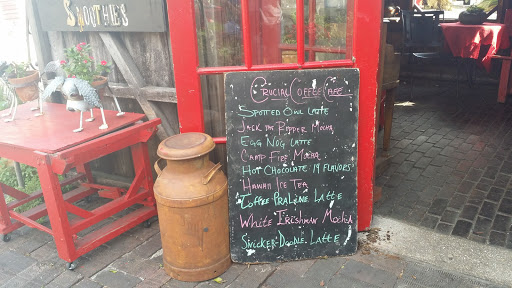 SMOOTHIE'S
CRUCIAL COFFEE CAFE.
SPOTTED OWL LATTE
JACK THE RIPPER MOCHA
EGG NOG LATTE
CAMP FIRE MOCHA
HOT CHOCOLATE 19 FLAVORS
HAWAII ICE TEA
TOFFEE PRALINE LATTE
WHITE IRISHMAN MOCHA
SNICKER-DOODLE LATTE